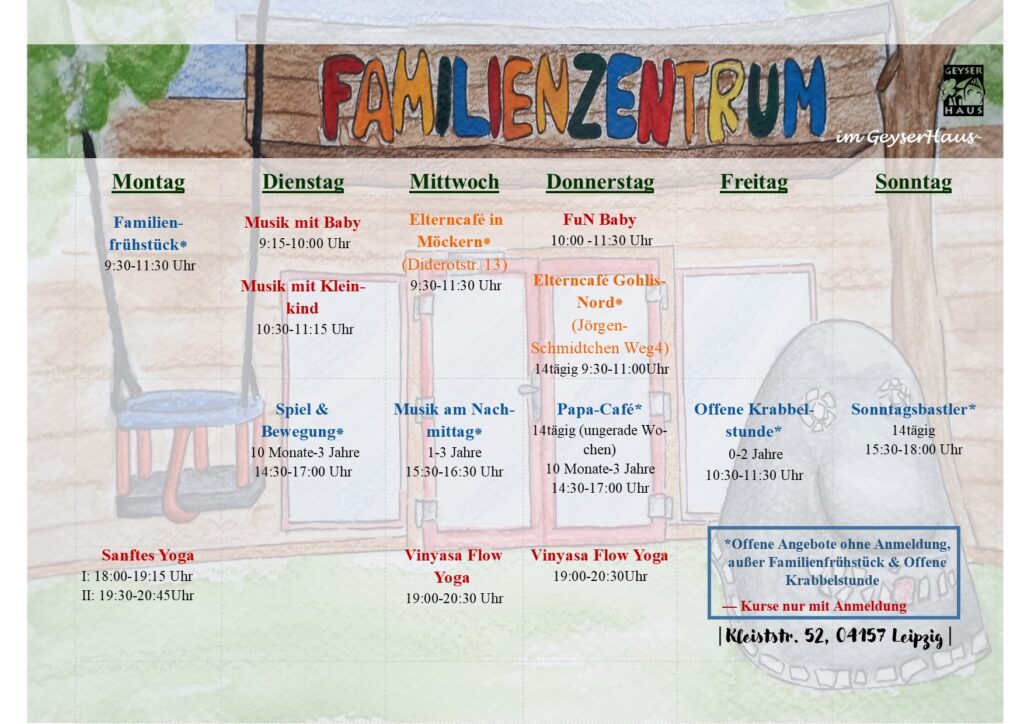 FAMILIENZENTRUM
GEYSER
HAUS
im GeyserHaus
Montag
Dienstag
Mittwoch
Donnerstag
Freitag
Sonntag
Familien-
frühstück*
9:30-11:30 Uhr
Musik mit Baby
9:15-10:00 Uhr
Musik mit Klein-
kind
10:30-11:15 Uhr
Elterncafé in
Möckern*
(Diderotstr. 13)
9:30-11:30 Uhr
FuN Baby
10:00 -11:30 Uhr
Elterncafé Gohlis-
Nord*
(Jörgen-
Schmidtchen Weg4)
14tägig 9:30-11:00Uhr
Spiel &
Bewegung*
10 Monate-3 Jahre
14:30-17:00 Uhr
Musik am Nach-
mittag*
1-3 Jahre
15:30-16:30 Uhr
Papa-Café*
14tägig (ungerade Wo-
chen)
10 Monate-3 Jahre
14:30-17:00 Uhr
Offene Krabbel-
stunde*
0-2 Jahre
10:30-11:30 Uhr
Sonntagsbastler*
14tägig
15:30-18:00 Uhr
Sanftes Yoga
I: 18:00-19:15 Uhr
II: 19:30-20:45Uhr
Vinyasa Flow
Yoga
19:00-20:30 Uhr
Vinyasa Flow Yoga
19:00-20:30Uhr
*Offene Angebote ohne Anmeldung,
außer Familienfrühstück & Offene
Krabbelstunde
— Kurse nur mit Anmeldung
|Kleiststr. 52, 04157 Leipzig|